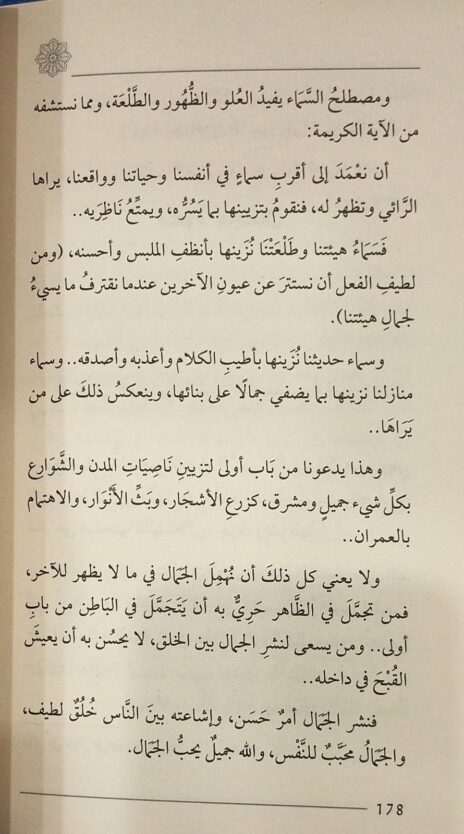 ومصطلحُ السَّمَاء يفيدُ العُلو والظُّهُور والطَّلْعَة، ومما نستشفه
من الآية الكريمة:
أن نعْمَدَ إلى أقربِ سماءٍ في أنفسنا وحياتنا وواقعنا، يراها
الرَّائي وتظهرُ له، فنقومُ بتزيينها بما يَسُرُّه، ويمتِّعُ نَاظِرَيه..
فَسَمَاءُ هيئتنا وطَلْعَتْنَا نُزَينها بأنظفِ الملبس وأحسنه، (ومن
لطيفِ الفعل أن نستترَ عن عيونِ الآخرين عندما نقترفُ ما يسيءُ
لجمالِ هيئتنا).
وسماء حديثنا نُزَينها بأطيبِ الكلام وأعذبه وأصدقه.. وسماء
منازلنا نزينها بما يضفي جمالًا على بنائها، وينعكسُ ذلكَ على من
يَرَاهَا..
وهذا يدعونا من بَاب أولى لتزيينِ نَاصِيَاتِ المدن والشَّوَارِع
بكلِّ شيء جميلٍ ومشرق، كزرعِ الأشجَار، وبَثِّ الأَنْوَار، والاهتمام
بالعمران..
ولا يعني كل ذلكَ أن نُهْمِلَ الجَمَال في ما لا يظهر للآخر،
فمن تجمَّلَ في الظَّاهر حَرِيٌّ به أن يَتَجَمَّلَ في البَاطِن من بابِ
أولى.. ومن يسعى لنشرِ الجمال بين الخلق، لا يحسُن به أن يعيشَ
القُبْحَ في داخله..
فنشر الجَمَال أمرٌ حَسَن، وإشاعته بينَ النَّاس خُلُقٌ لطيف،
والجَمَالُ محبَّبٌ للنَّفْس، والله جميلٌ يحبُّ الجَمَال.
178